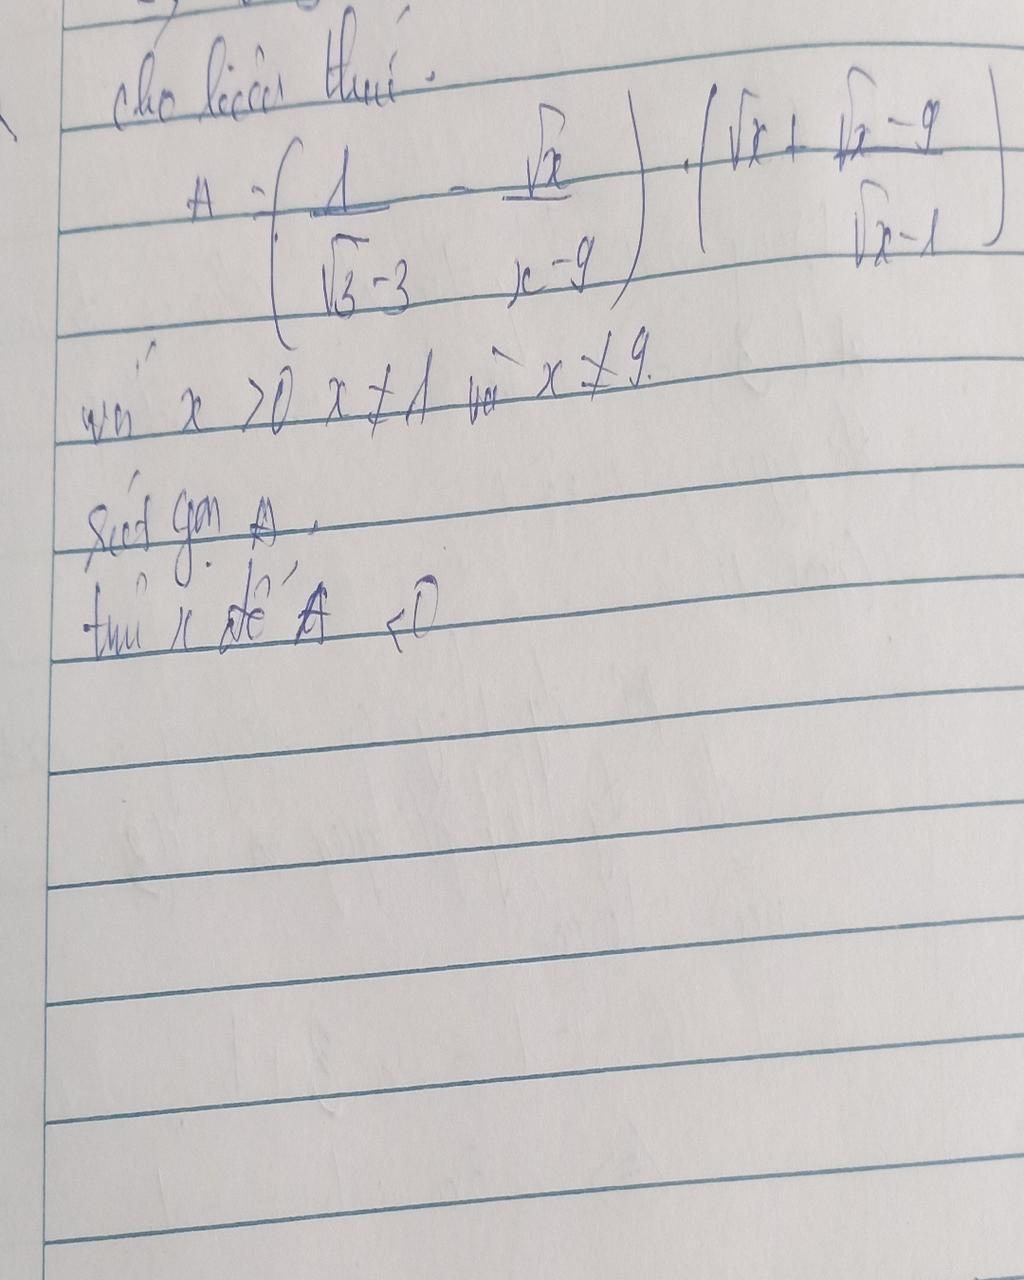 cho biểu thức.
A = ( 1/(√3-3) - √x/(x-9) ) . ( √x + (√x-9)/(√x-1) )
với x >0 x ≠ 1 và x ≠ 9.
rút gọn A.
x để A <0